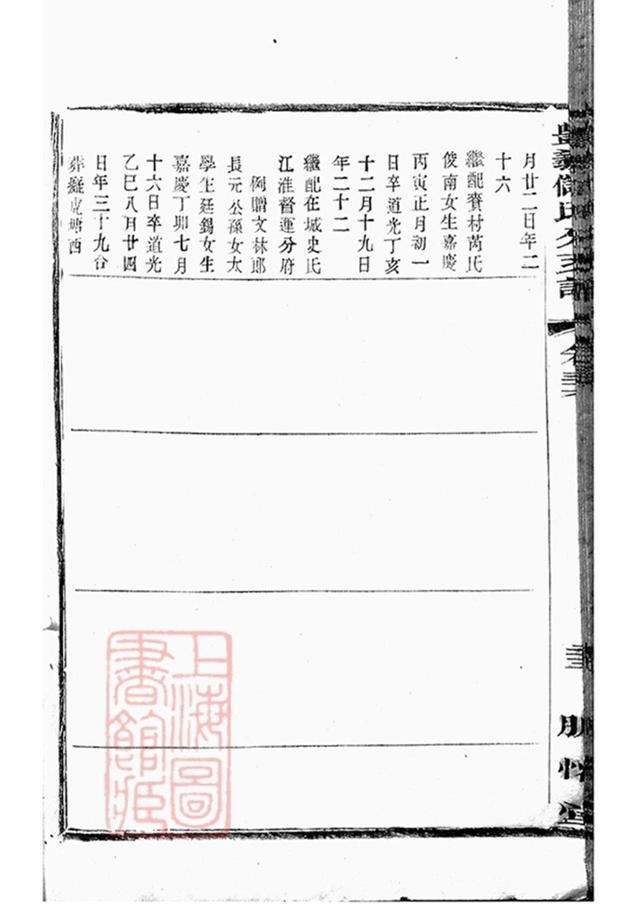 月廿二日年二
十六
繼配賽村芮氏
俊南女生嘉慶
丙寅正月初一
日卒道光丁亥
十二月十九日
年二十二
繼配在城史氏
江淮督運分府
例贈文林郎
長元公孫女太
學生廷錫女生
嘉慶丁卯七月
十六日卒道光
乙巳八月廿四
日年三十九合
葬癡虎塘西
上海圖
書館藏